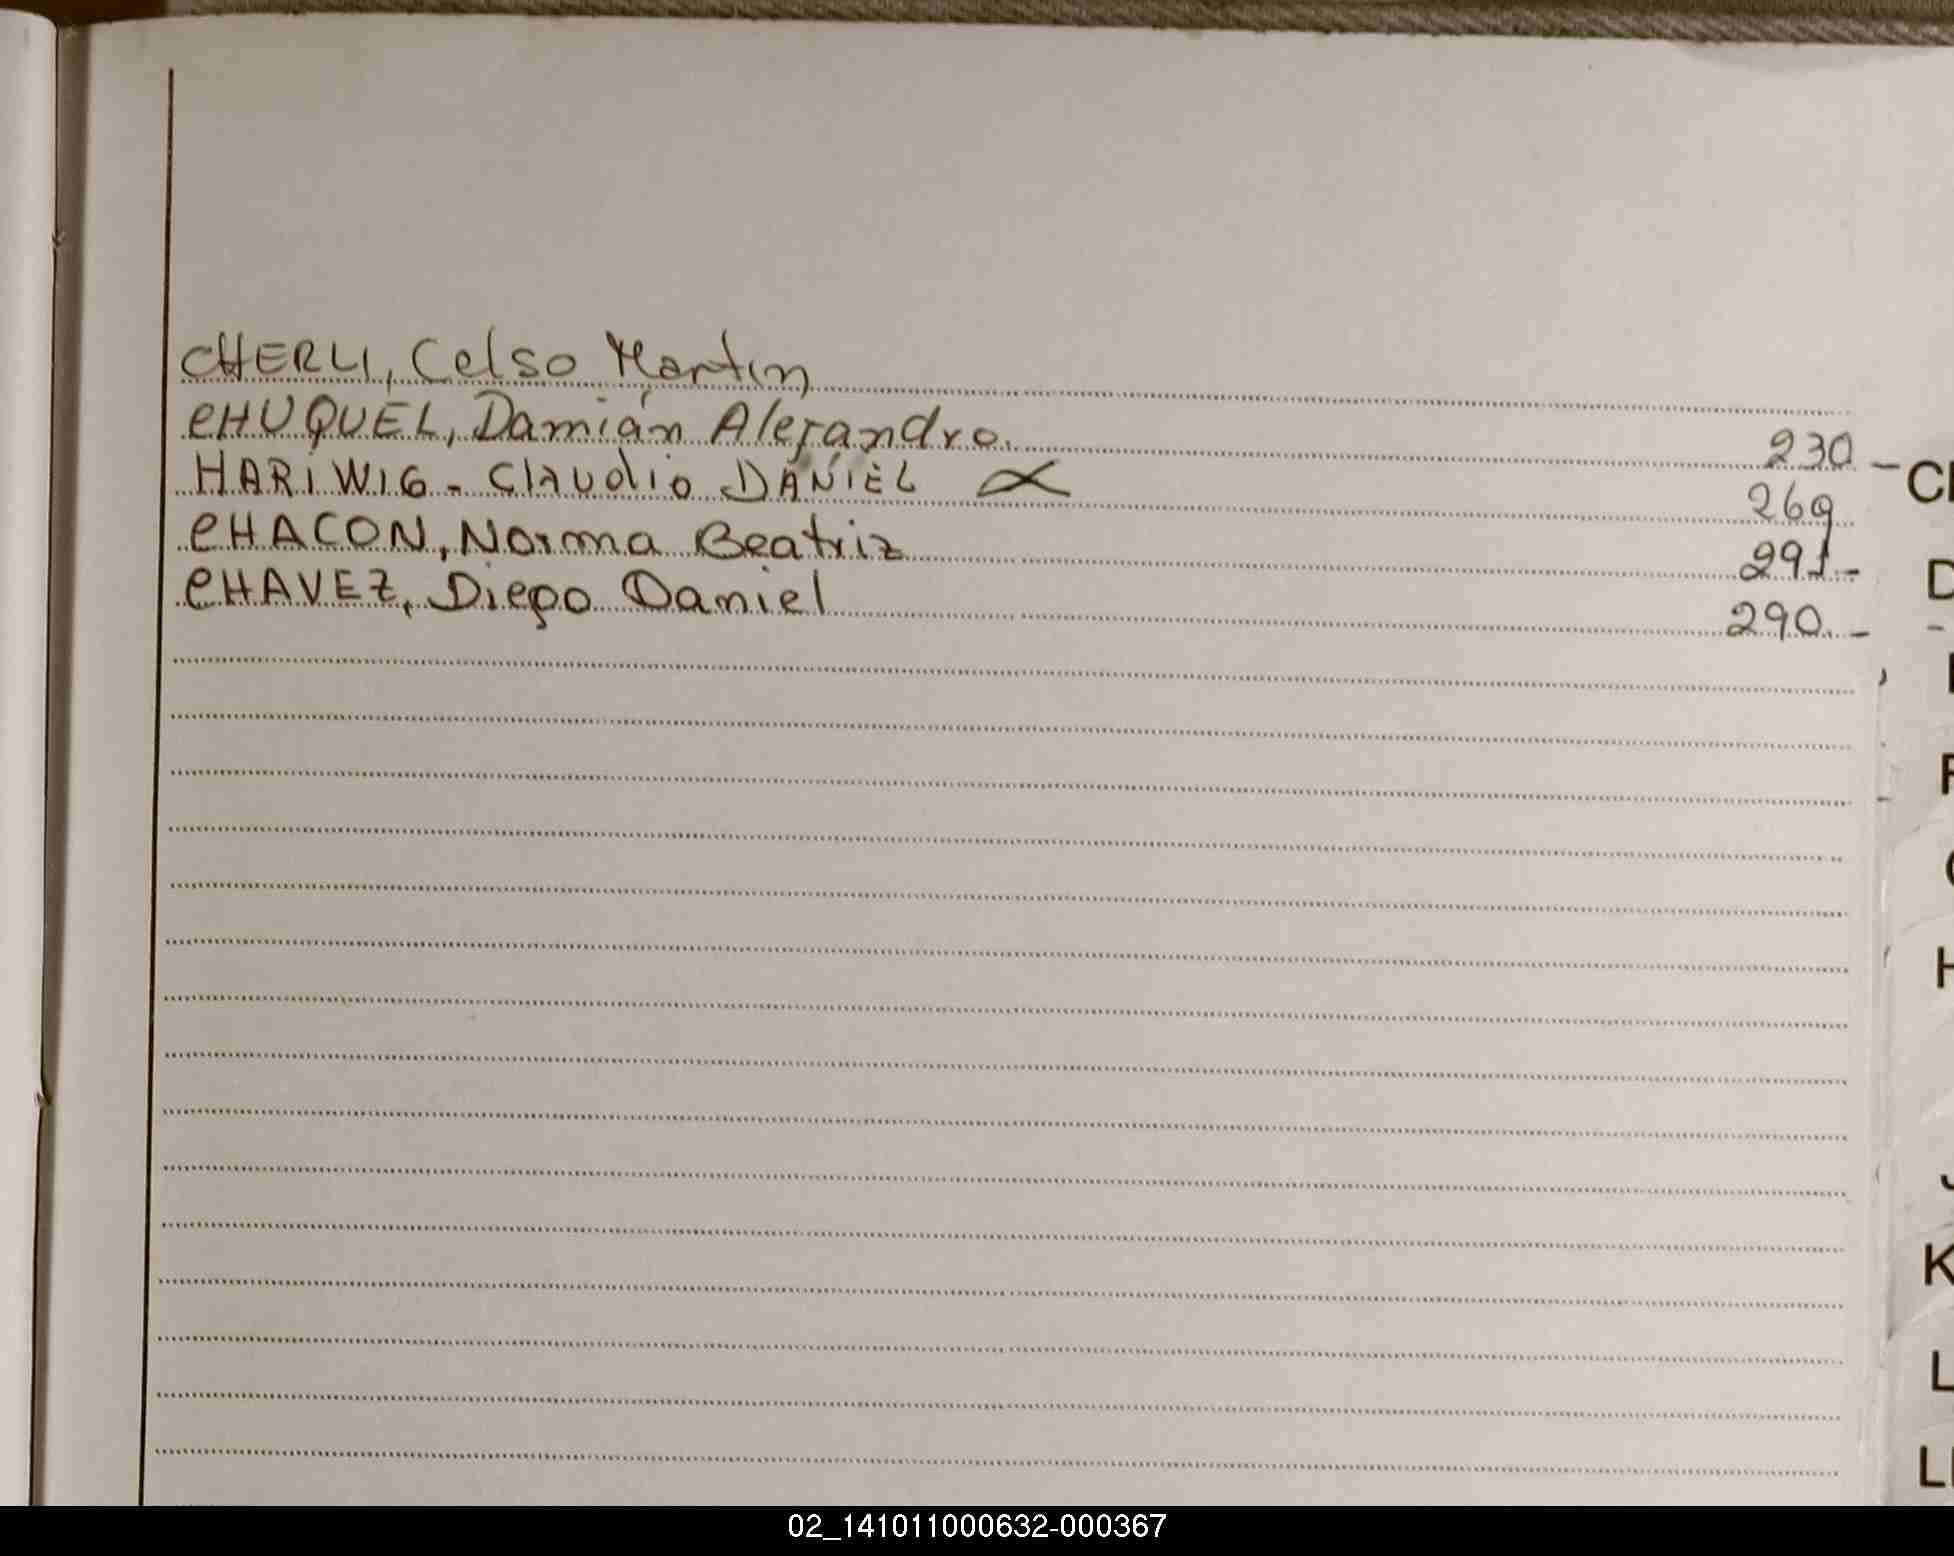 CHERLI, Celso Martín
CHUQUEL, Damián Alejandro. 230 -
HARIWIG - Claudio DANIEL 269
CHACON, Norma Beatriz 291-
CHAVEZ, Diego Daniel 290.-
D
H
J
K
L
02_141011000632-000367